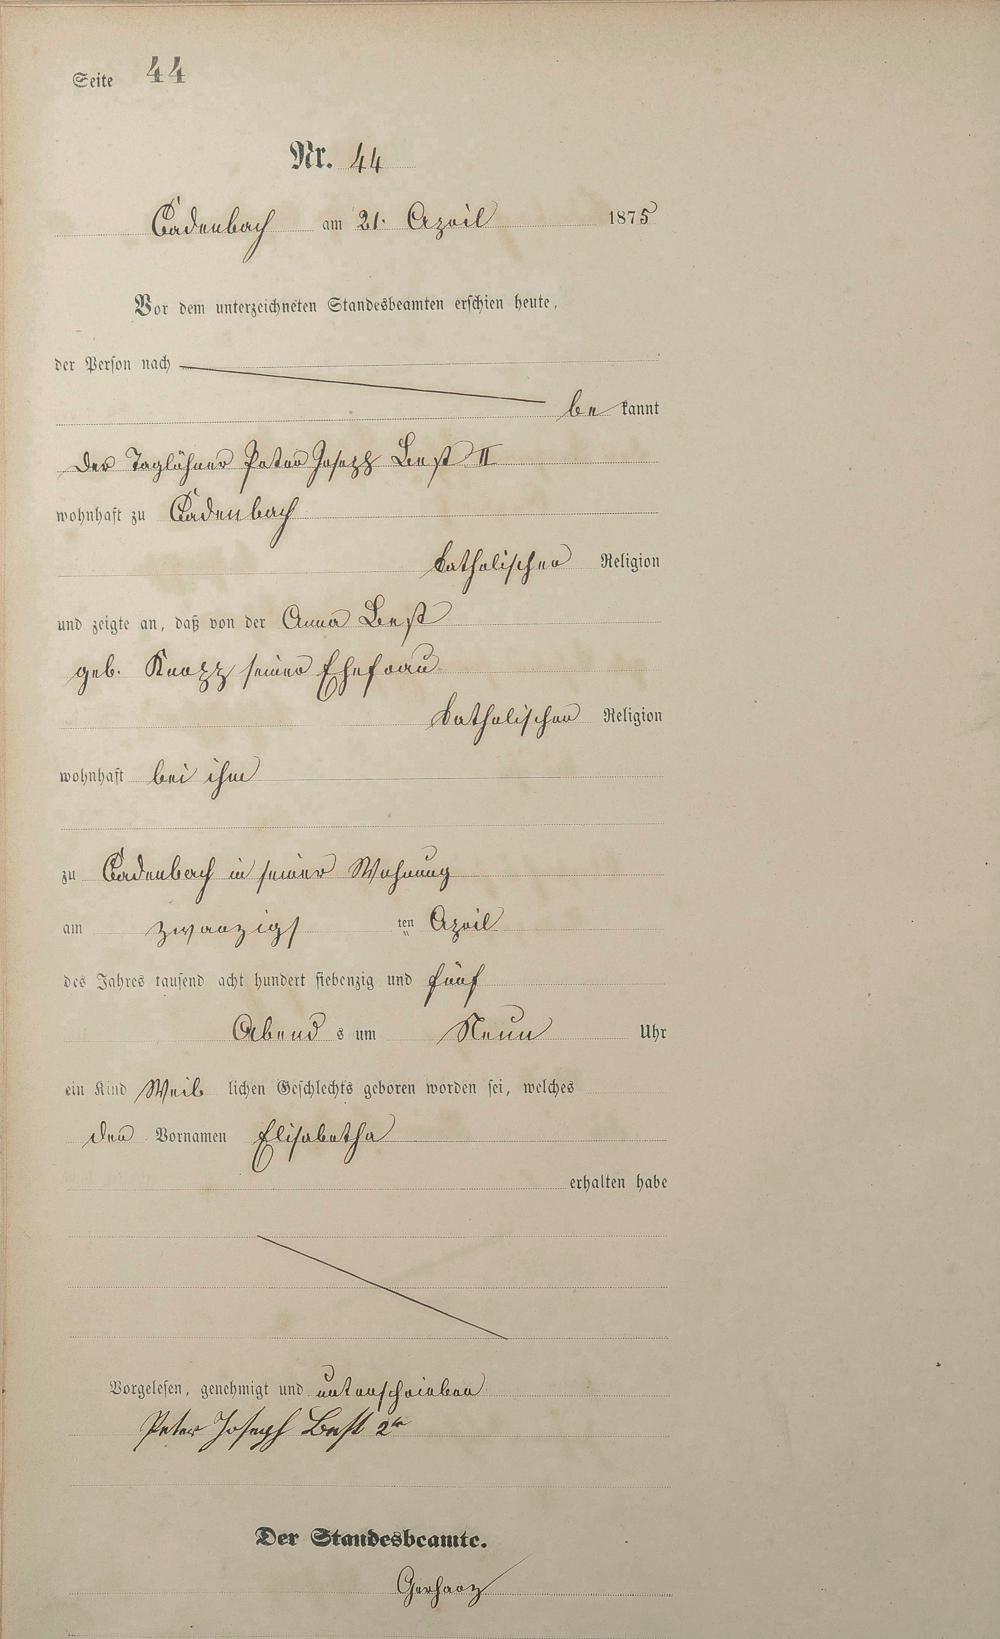 Seite 44
Nr. 44
Cadenbach am 21. April 1875
Vor dem unterzeichneten Standesbeamten erschien heute,
der Person nach
be kannt
der Taglöhner Peter Joseph Best II
wohnhaft zu Cadenbach
katholischer Religion
und zeigte an, daß von der Anna Best
geb. Knopp seiner Ehefrau
katholischer Religion
wohnhaft bei ihm
zu Cadenbach in seiner Wohnung
am zwanzigs ten April
des Jahres tausend acht hundert siebenzig und fünf
Abend s um Neun Uhr
ein Kind Weib lichen Geschlechts geboren worden sei, welches
den Vornamen Elisabetha
erhalten habe
Vorgelesen, genehmigt und unterschrieben
Peter Joseph Best 2ter
Der Standesbeamte.
Gerharz